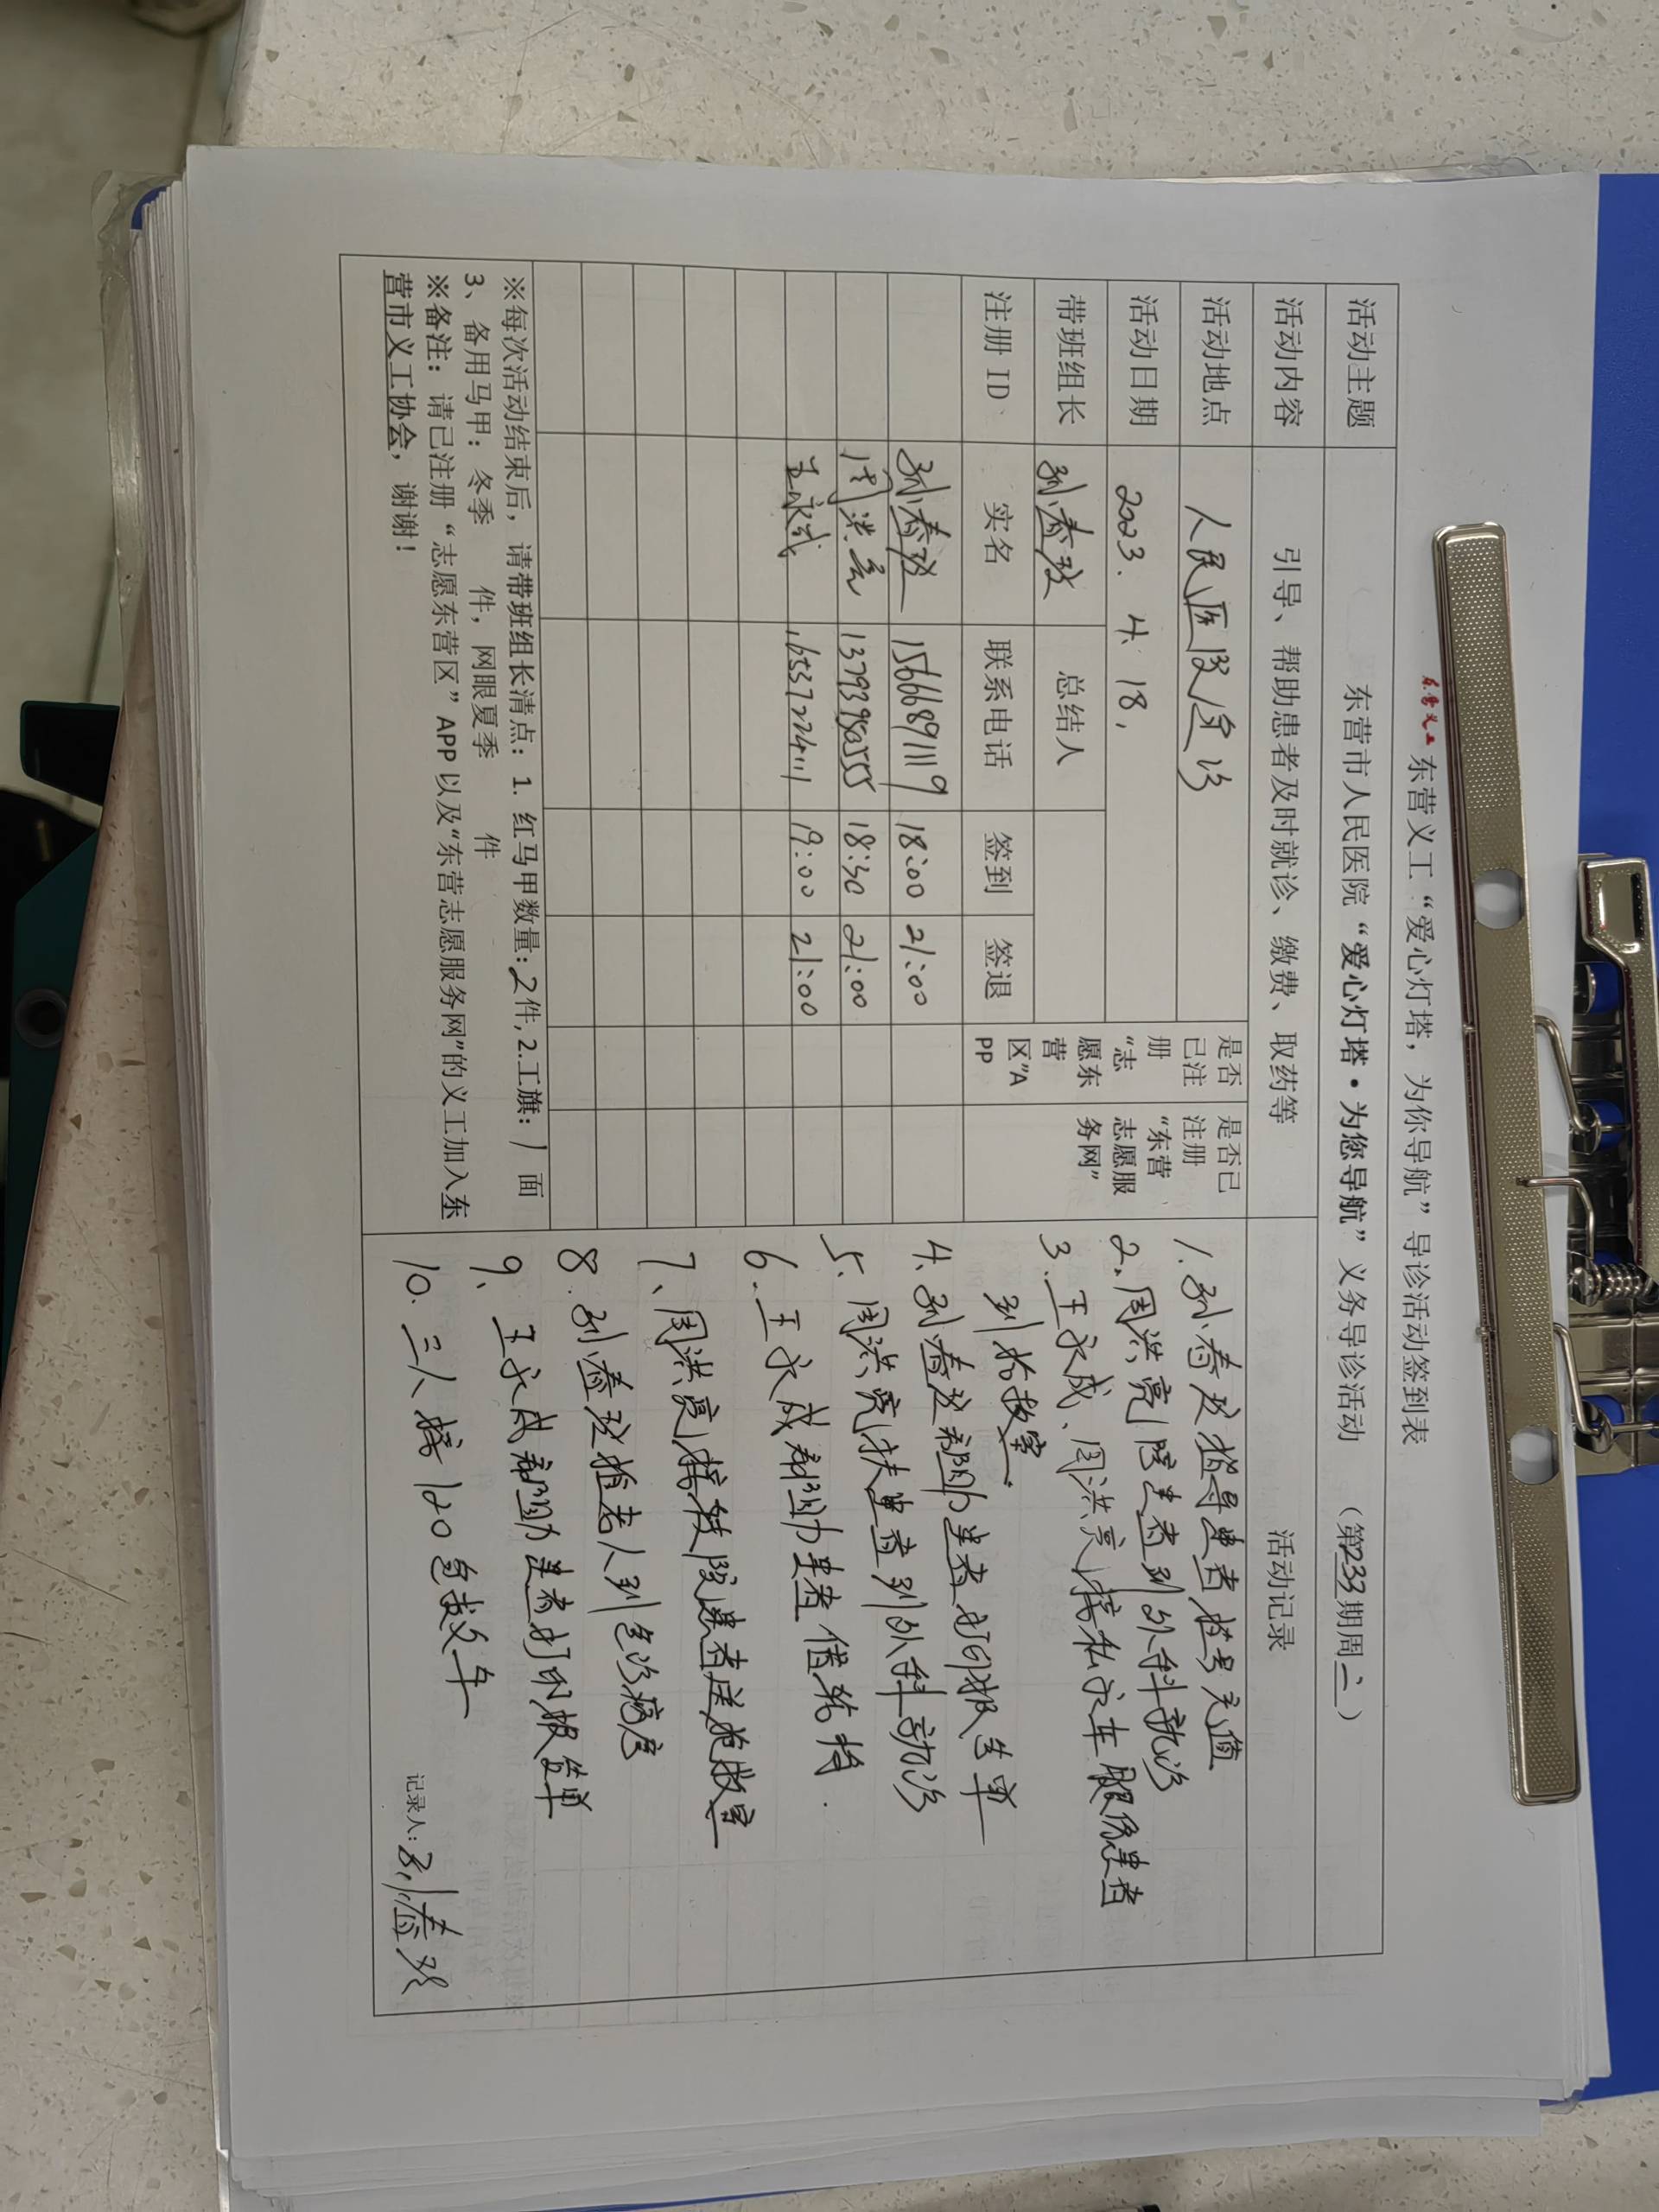 东营义工 东营义工“爱心灯塔，为你导航”导诊活动签到表
活动主题 东营市人民医院“爱心灯塔·为您导航”义务导诊活动 （第233期周二）
活动内容 引导、帮助患者及时就诊、缴费、取药等 活动记录
活动地点 人民医院急诊
活动日期 2023. 4. 18,
带班组长 孙春玲 总结人
是否已注册“志愿东营区”APP
是否已注册“东营志愿服务网”
注册 ID 实名 联系电话 签到 签退
孙春玲 15666891119 18:00 21:00
周洪亮 18:30 21:00
王永成 19:00 21:00
※每次活动结束后，请带班组长清点：1. 红马甲数量：2件，2.工旗：1 面
3、备用马甲：冬季 件，网眼夏季 件
※备注：请已注册“志愿东营区”APP 以及“东营志愿服务网”的义工加入东
营市义工协会，谢谢！
1. 孙春玲指导患者挂号充值
2. 周洪亮陪患者到外科就诊
3. 王永成、周洪亮接私家车患者
到抢救室
4. 孙春玲帮助患者打印报告单
5. 周洪亮扶患者到外科就诊
6. 王永成帮助患者借轮椅.
7、周洪亮接转院患者送抢救室
8. 孙春玲推老人到急诊病房
9. 王永成帮助患者打印报告单
10. 三人接120急救车
记录人：孙春玲